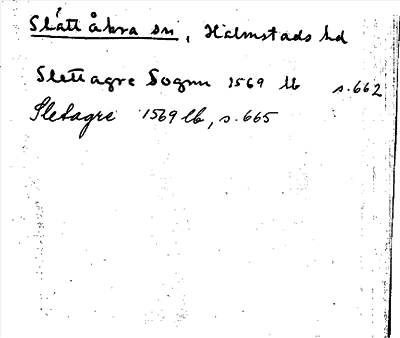 Slättåkra sn, Halmstads hd
Slettagre Sognn 1569 lb s. 662
Sletagre 1569 lb, s. 665